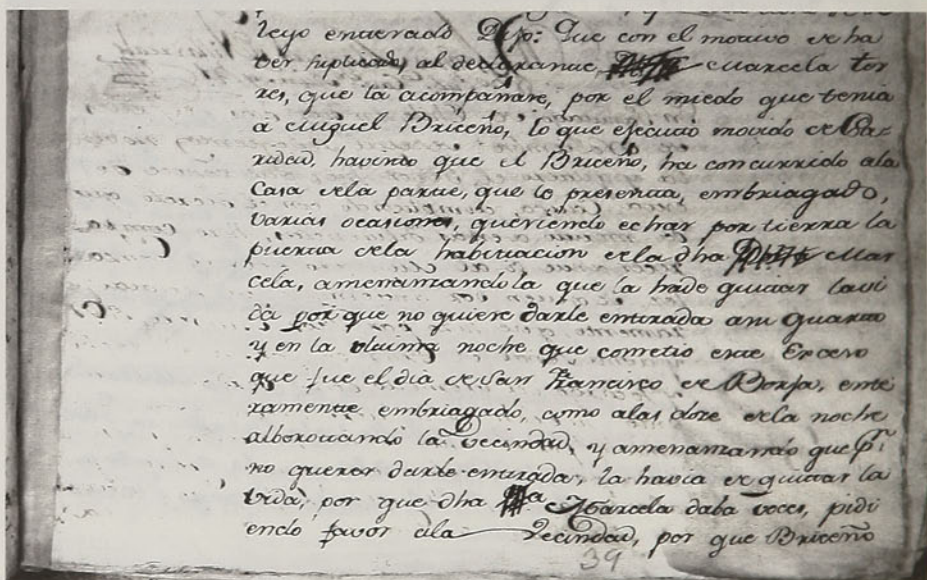 leyo enterado Dijo: Que con el motivo de ha
ver suplicado, al declarante Marcela tor
res, que la acompañase, por el miedo que tenia
á Miguel Briceño, lo que ejecutó movido de Ca-
ridad, haviendo que el Briceño, ha concurrido ala
Casa dela parte, que lo presenta, embriagado,
varias ocasiones, queriendo echar por tierra la
puerta dela habitacion dela dha Mar
cela, amenazandola que la hade quitar lavi
da por que no quiere darle entrada asu Quarto
y en la ultima noche que cometio este Exceso
que fue el dia de San Francisco de Borja, ente
ramente embriagado, como alas doze dela noche
alborotando la Vecindad, y amenazando que pr.
no querer darle entrada, la havia de quitar la
vida, por que dha Marcela daba voces, pidi
endo favor ala Vecindad, por que Briceño
39